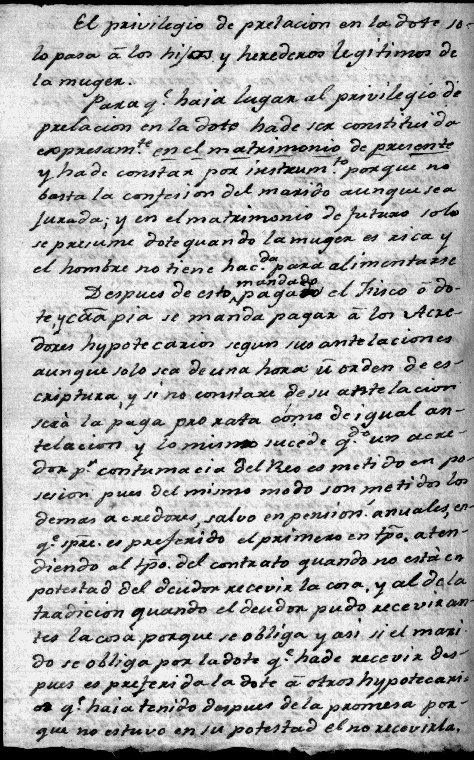 El privilegio de prelacion en la dote so-
lo pasa â los hijos y herederos legitimos de
la muger.
Para q.e haia lugar al privilegio de
prelacion en la dote hade ser constituida
expresam.te en el matrimonio de presente
y hade constar por instrum.to porque no
basta la confesion del marido aunque sea
jurada; y en el matrimonio de futuro solo
se presume dote quando la muger es rica y
el hombre no tiene hac.da para alimentarse
Despues de esto mandado pagado el Fisco ô do-
te, y cãa pia se manda pagar â los Acre-
dores hypotecarios segun sus antelaciones
aunque solo sea de una hora û orden de es-
criptura, y si no constare de su antelacion
serà la paga pro rata cómo de igual an-
telacion y lo mismo sucede q.do un acre-
dor p.r contumacia del Reo es metido en po-
sesion pues del mismo modo son metidos los
demas acredores, salvo en pension. anuales, en
q.e spre. es preferido el primero en tpõ. aten-
diendo al tpõ. del contrato quando no està en
potestad del deudor recevir la cosa, y al de la
tradicion quando el deudor pudo recevir an-
tes la cosa porque se obliga y asi si el mari
do se obliga por la dote q.e hade recevir des-
pues es preferida la dote â otros hypotecari-
os q.e haia tenido despues de la promesa por-
que no estuvo en su potestad el no recevirla.